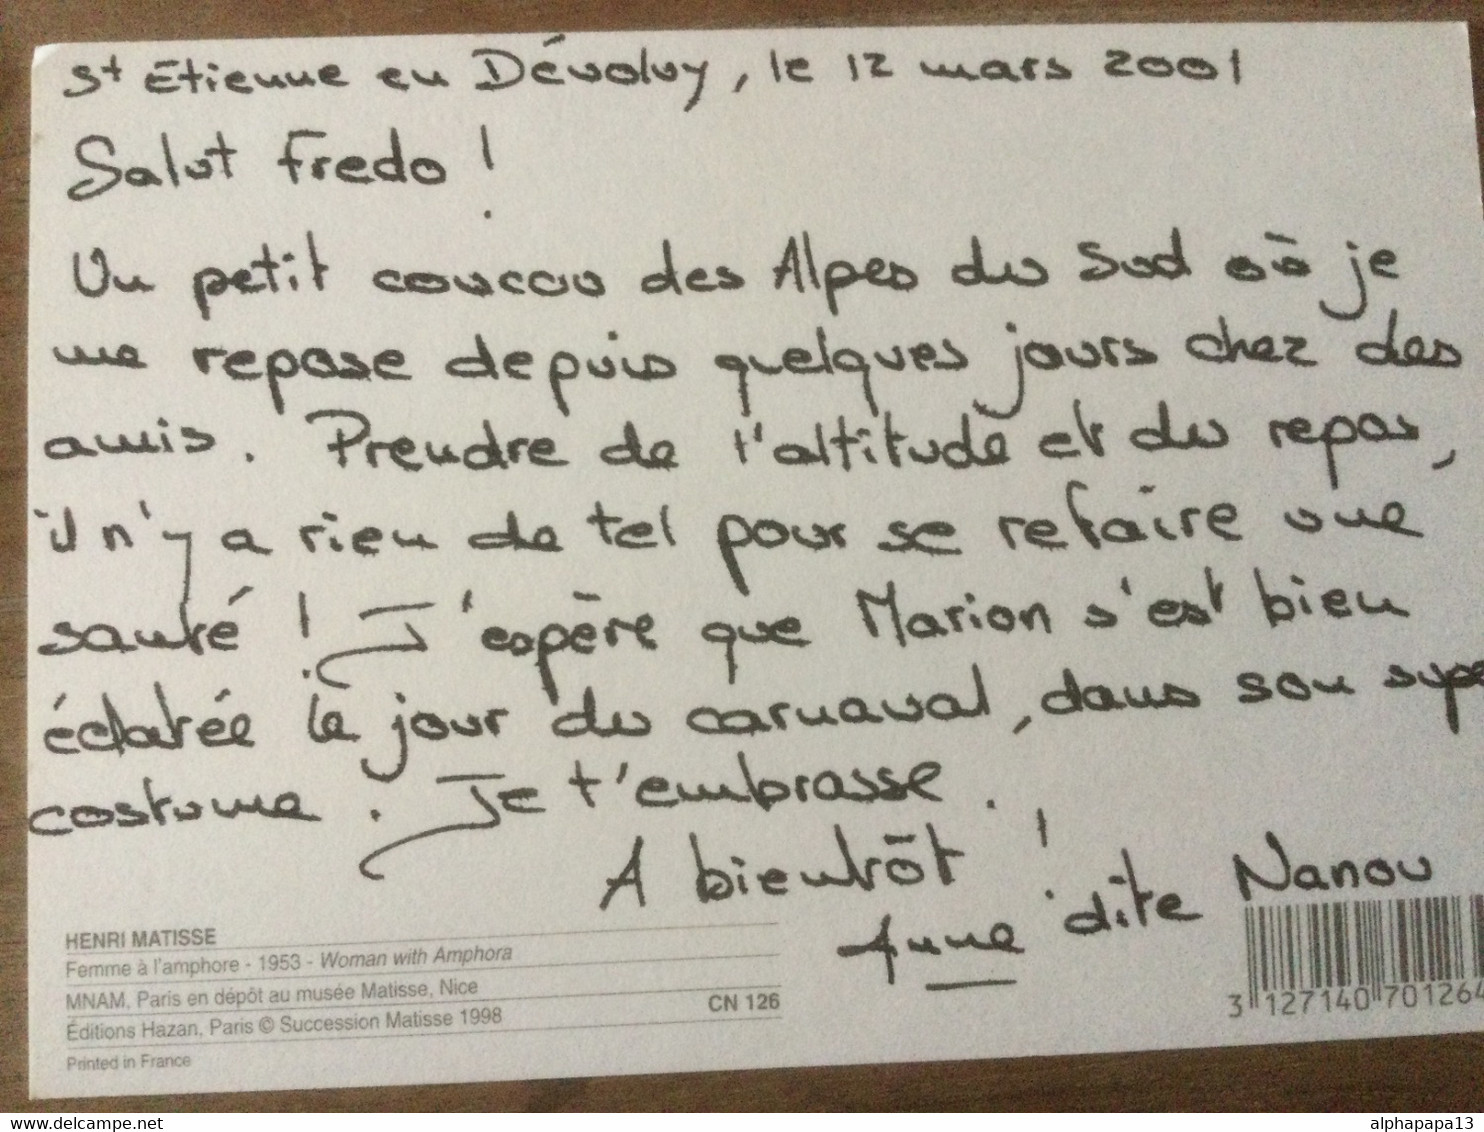 St Etienne en Dévoluy, le 12 mars 2001
Salut Fredo !
Un petit coucou des Alpes du Sud où je
me repose depuis quelques jours chez des
amis. Prendre de l'altitude et du repos,
il n'y a rien de tel pour se refaire une
santé ! J'espère que Marion s'est bien
éclatée le jour du carnaval, dans son supe
costume. Je t'embrasse.
A bientôt !
Anne dite Nanou
HENRI MATISSE
Femme à l'amphore - 1953 - Woman with Amphora
MNAM, Paris en dépôt au musée Matisse, Nice
Éditions Hazan, Paris © Succession Matisse 1998
CN 126
Printed in France
3 127140 701264
delcampe.net
alphapapa13